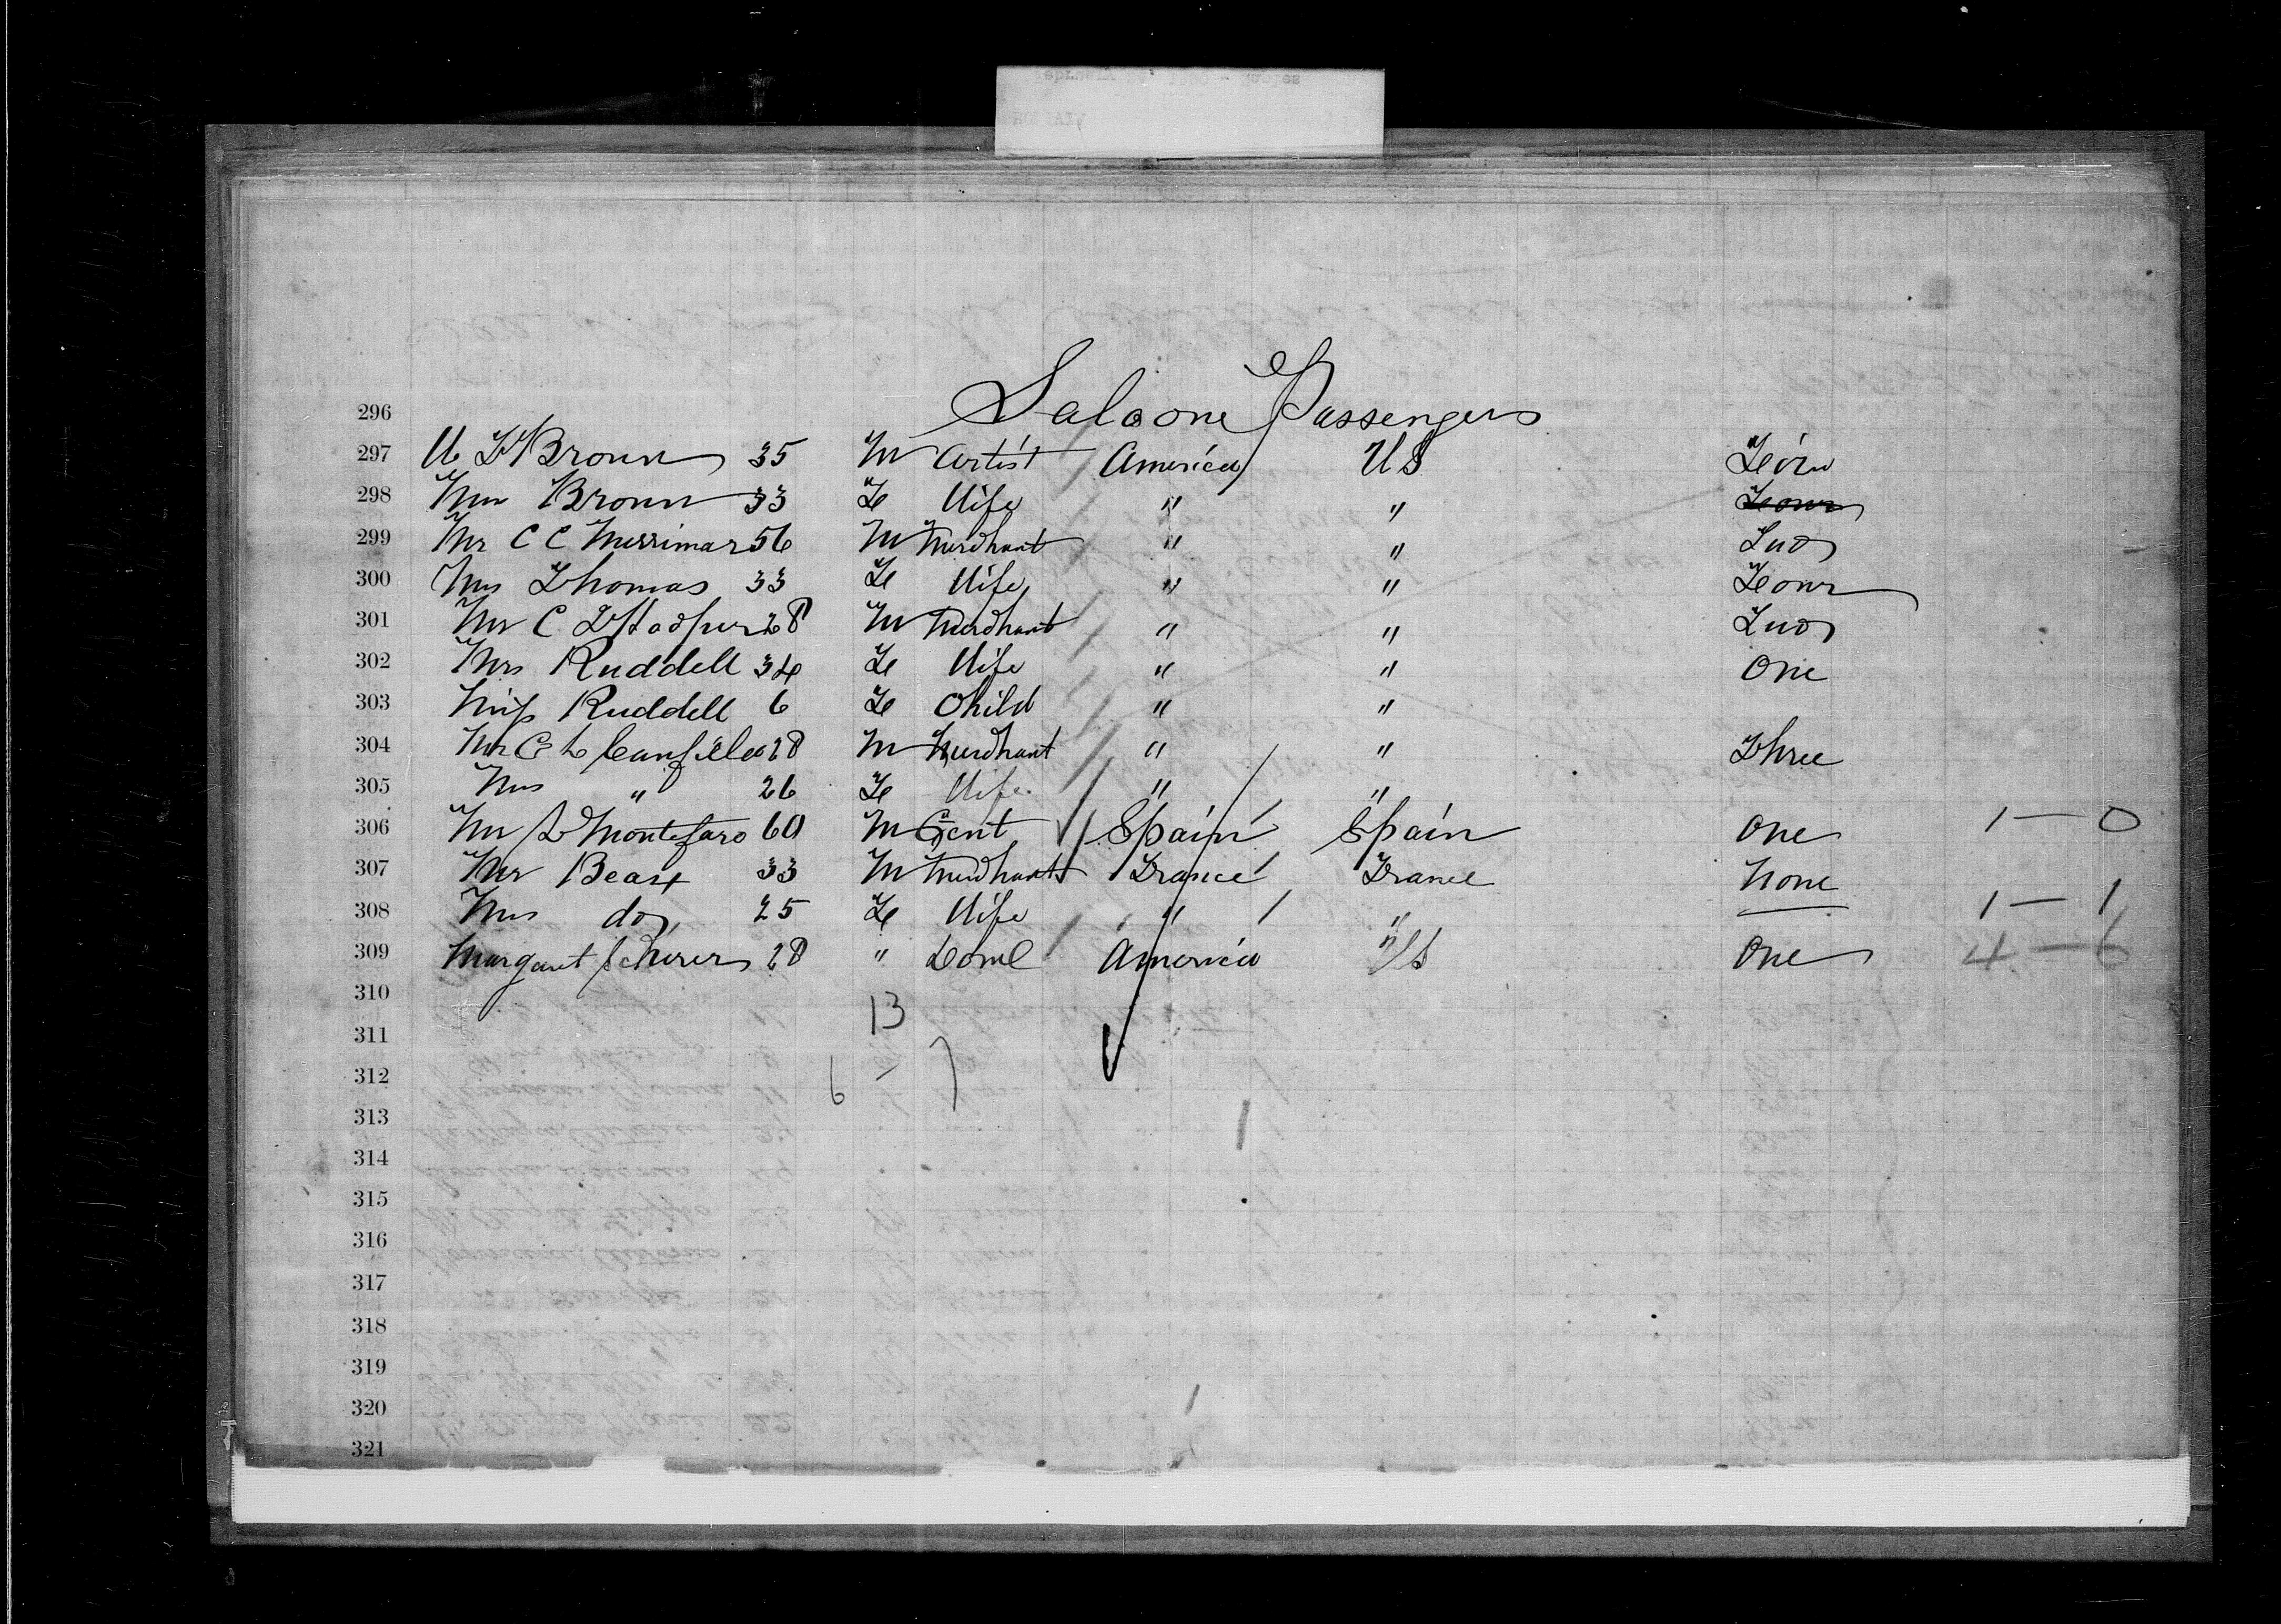 296 Saloone Passengers
297 W L Broun 35 M Artist America US
298 Mrs Broun 33 Fe Wife " " Four
299 Mr C C Merriman 56 M Merchant " " Two
300 Mrs Thomas 33 Fe Wife " " Four
301 Mr C 28 M Merchant " " Two
302 Mrs Ruddell 34 Fe Wife " " One
303 Miss Ruddell 6 Fe Child " "
304 Mr C L Canfield 28 M Merchant " " Three
305 Mrs " 26 Fe Wife " "
306 Mr Montefaro 60 M Gent Spain Spain One 1 — 0
307 Mr 33 M Merchant France France None
308 Mrs do 25 Fe Wife " " 1 — 1
309 Margaret 28 " America US One 4 — 6
310 13
311
312 6 — 7
313
314
315
316
317
318
319
320
321